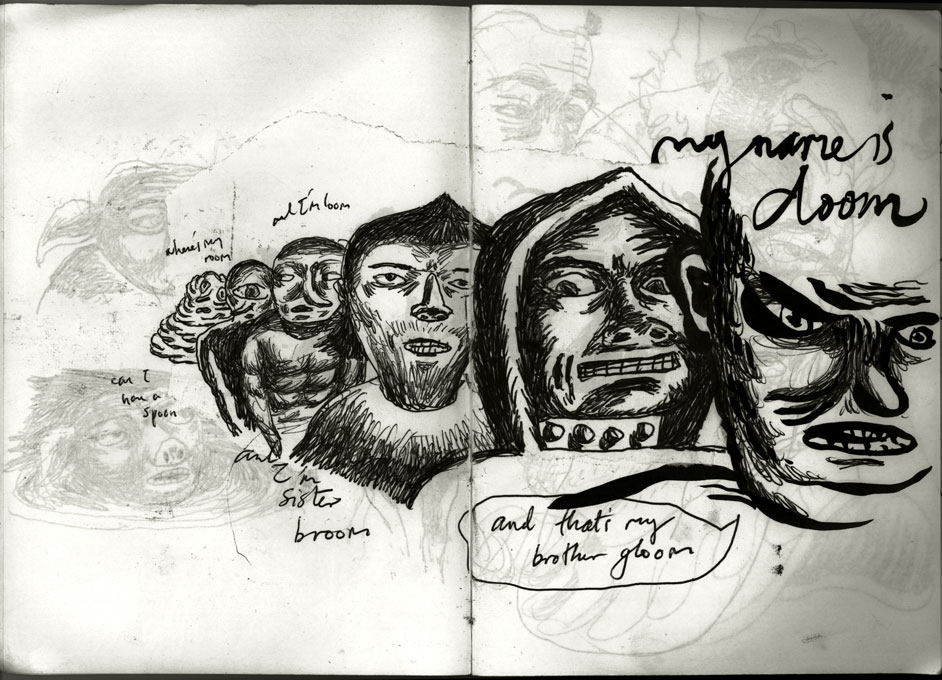 my name is
doom
and that's my
brother gloom
and
I'm
sister
broom
and I'm loom
where's my
room
can I
have a
spoon